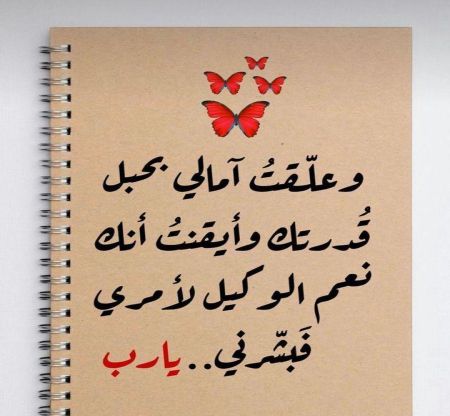 وعلّقتُ آمالي بحبل
قُدرتك وأيقنتُ أنك
نعم الوكيل لأمري
فَبشّرني..يارب